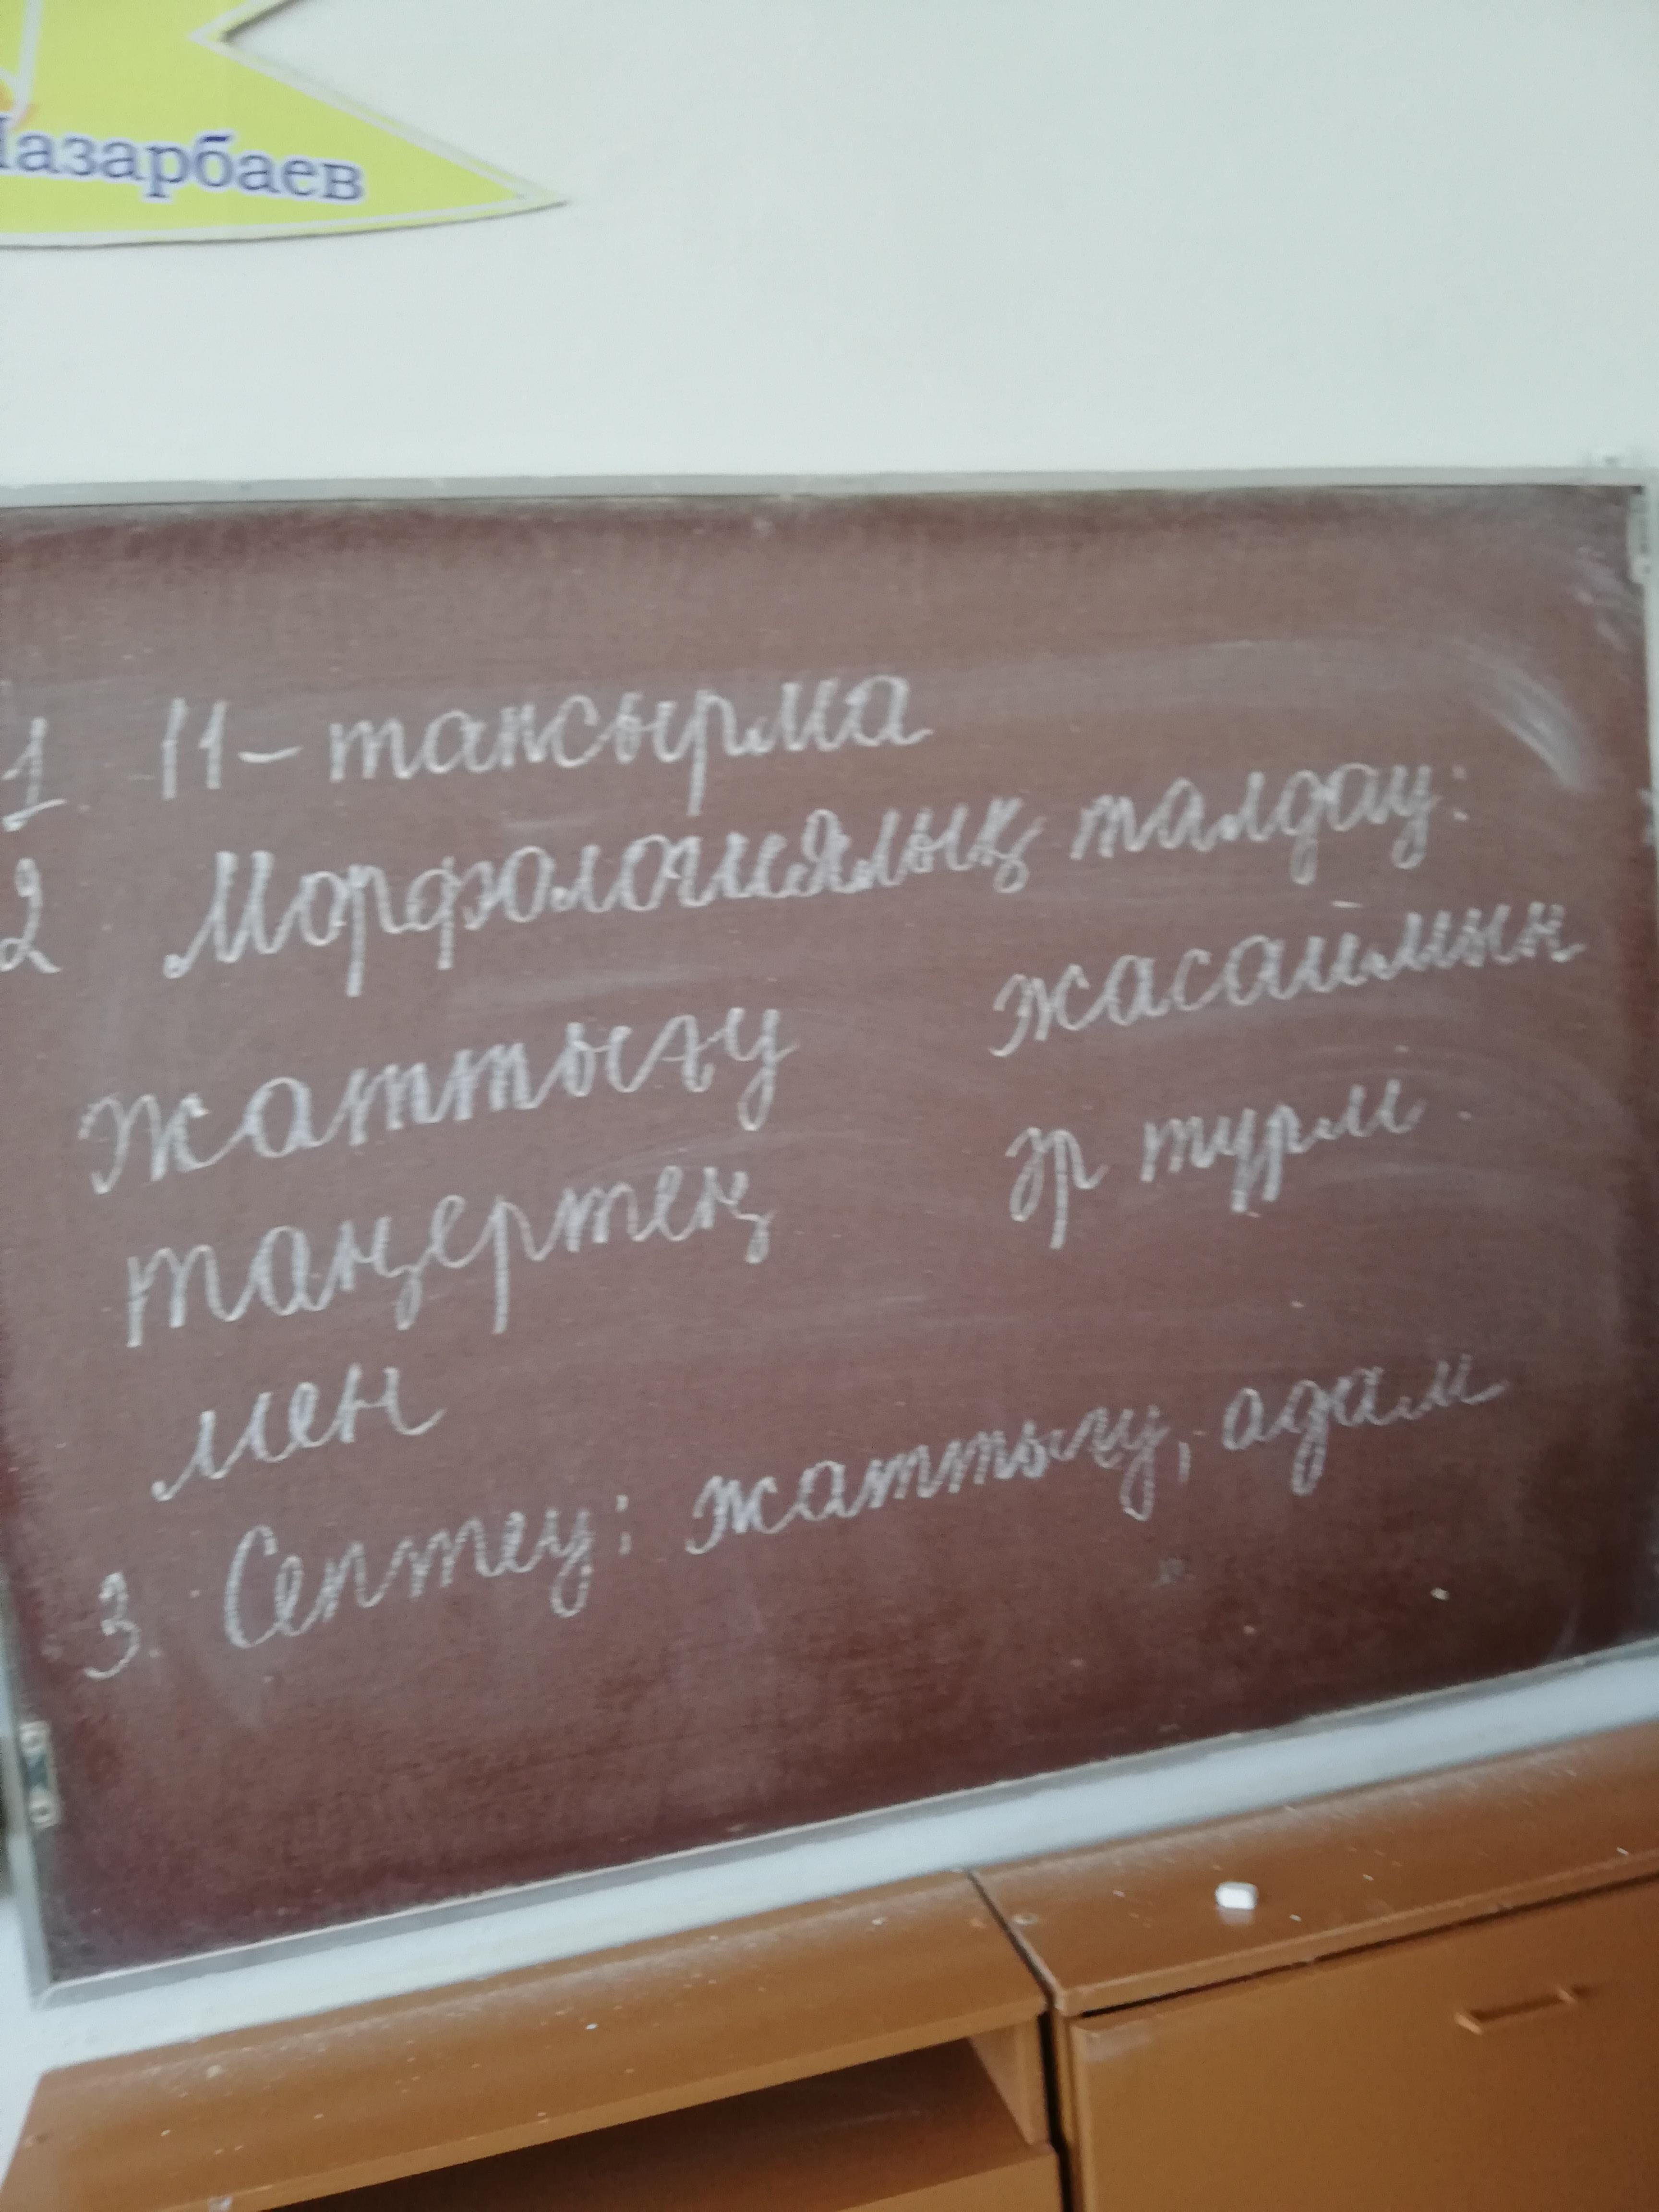 Назарбаев
1 11 - тапсырма
2 Морфологиялық талдау:
жаттығу жасаймын
таңертең әр түрлі
мен
3. Септеу: жаттығу, адам